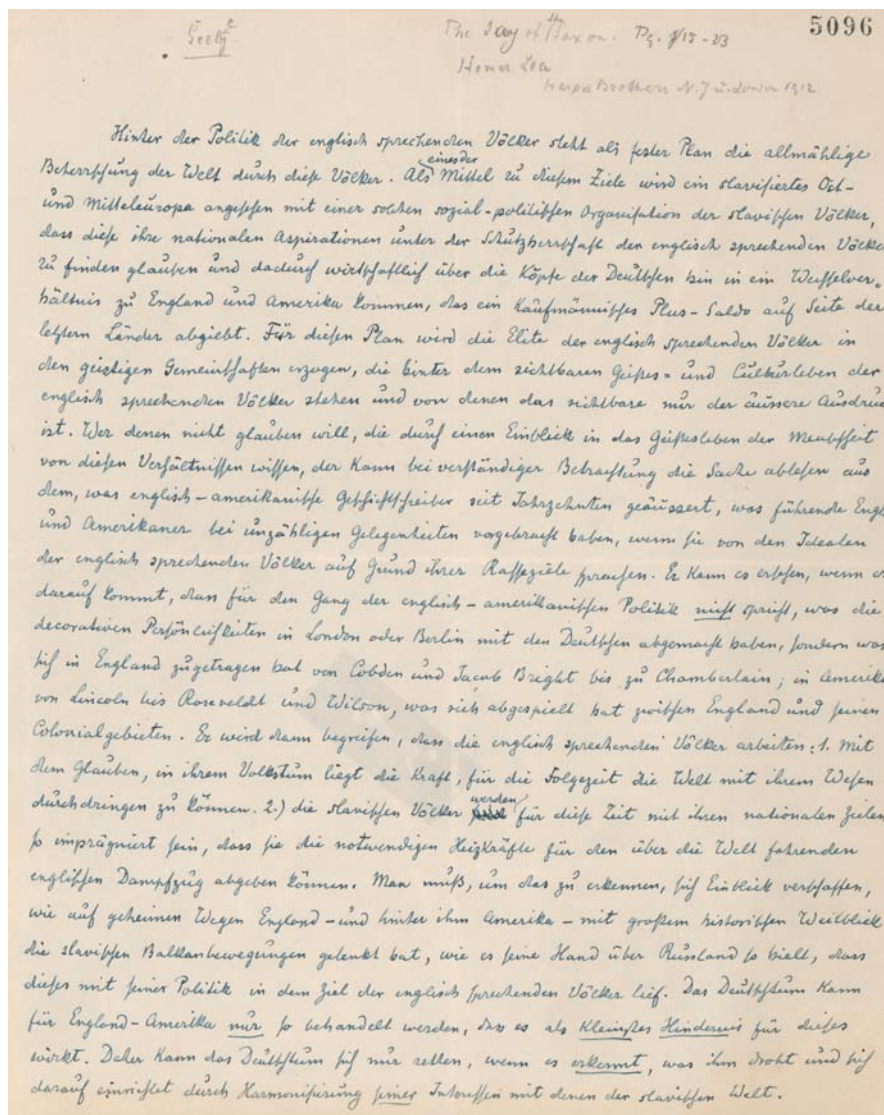 5096
Seely
The Day of the Saxon. Pg. 15-23
Homer Lea
Harper Brothers N.J u. London 1912
Hinter der Politik der englisch sprechenden Völker steht als fester Plan die allmählige
Beherrschung der Welt durch diese Völker. Als eines der Mittel zu diesem Ziele wird ein slavisiertes Ost-
und Mitteleuropa angesehen mit einer solchen sozial-politischen Organisation der slavischen Völker,
dass diese ihre nationalen Aspirationen unter der Schutzherrschaft der englisch sprechenden Völker
zu finden glauben und dadurch wirtschaftlich über die Köpfe der Deutschen hin in ein Wechselver-
hältnis zu England und Amerika kommen, das ein kaufmännisches Plus-Saldo auf Seite der
letztern Länder abgiebt. Für diesen Plan wird die Elite der englisch sprechenden Völker in
den geistigen Gemeinschaften erzogen, die hinter dem sichtbaren Geistes- und Culturleben der
englisch sprechenden Völker stehen und von denen das sichtbare nur der äussere Ausdruc
ist. Wer denen nicht glauben will, die durch einen Einblick in das Geistesleben der Menschheit
von diesen Verhältnissen wissen, der kann bei verständiger Betrachtung die Sache ablesen aus
dem, was englisch-amerikanische Geschichtschreiber seit Jahrzehnten geäussert, was führende Engl
und Amerikaner bei unzähligen Gelegenheiten vorgebracht haben, wenn sie von den Idealen
der englisch sprechenden Völker auf Grund ihrer Rasseziele sprachen. Er kann es ersehen, wenn er
darauf kommt, dass für den Gang der englisch-amerikanischen Politik nicht spricht, was die
decorativen Persönlichkeiten in London oder Berlin mit den Deutschen abgemacht haben, sondern was
sich in England zugetragen hat von Cobden und Jacub Bright bis zu Chamberlain; in Amerika
von Lincoln bis Roseveldt und Wilson, was sich abgespielt hat zwischen England und seinen
Colonialgebieten. Er wird dann begreifen, dass die englisch sprechenden Völker arbeiten: 1. Mit
dem Glauben, in ihrem Volkstum liegt die Kraft, für die Folgezeit die Welt mit ihrem Wesen
durchdringen zu können. 2.) die slavischen Völker werden für diese Zeit mit ihren nationalen Zielen
so imprägniert sein, dass sie die notwendigen Heizkräfte für den über die Welt fahrenden
englischen Dampfzug abgeben können. Man muß, um das zu erkennen, sich Einblick verschaffen,
wie auf geheimen Wegen England – und hinter ihm Amerika – mit großem historischen Weitblick
die slavischen Balkanbewegungen gelenkt hat, wie es seine Hand über Russland so hielt, dass
dieses mit seiner Politik in dem Ziel der englisch sprechenden Völker lief. Das Deutschtum kann
für England-Amerika nur so behandelt werden, das es als kleinstes Hindernis für dieses
wirkt. Daher kann das Deutschtum sich nur retten, wenn es erkennt, was ihm droht und sich
darauf einrichtet durch Harmonisierung seiner Interessen mit denen der slavischen Welt.